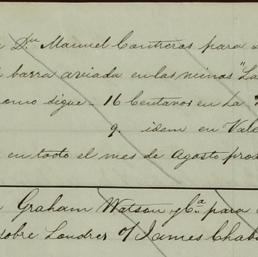 Dn Manuel Contreras para
barra aviada en las minas "La
como sigue - 16 Centavos en La
9. idem en Vale
en todo el mes de Agosto prox
Graham Watson y Ca. para
sobre Londres o/ James Chab